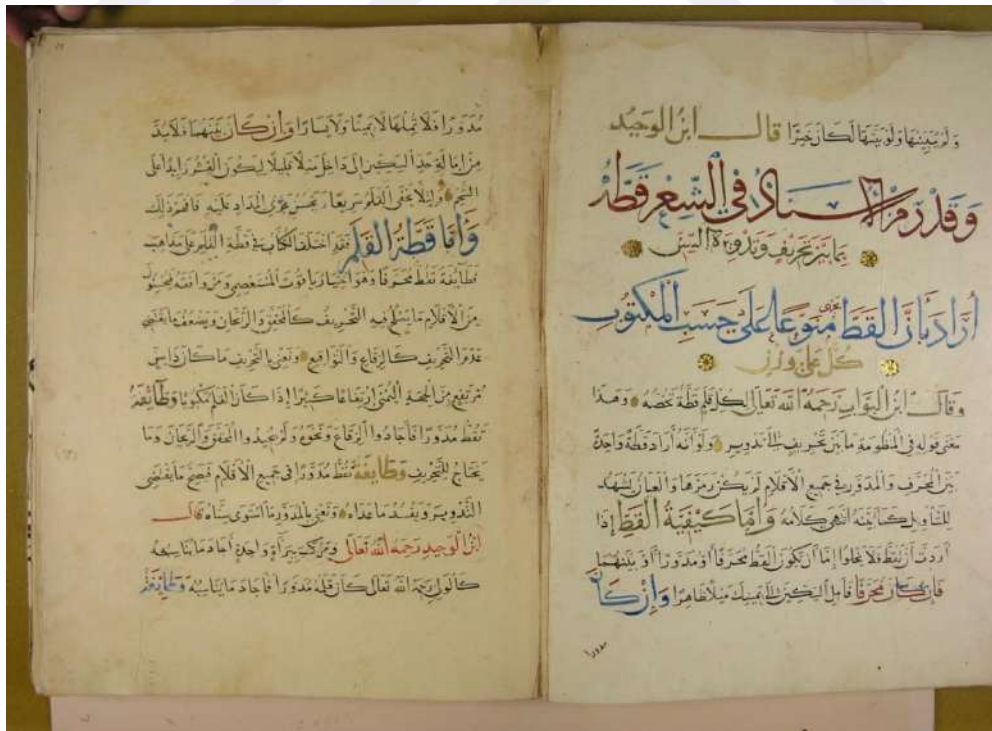 ولم يبينها ولو بينها لكان خيرا قال ابن الوحيد
وقد رمز الاستاذ في الشعر قطه
ما بين تحريف وتدويره اليس
أراد بأن القط منوعا على حسب المكتوب
كل على وزن
وقال ابن البواب رحمه الله تعالى لكل قلم قطة تخصه وهذا
معنى قوله في المنظومة ما بين تحريف الى تدوير ولو أنه أراد قطة واحدة
بين المحرف والمدور في جميع الأقلام لم يكن رمزها والعيان يشهد
انتهى كلامه وأما كيفية القط إذا
أردت أن تقط فلا يخلوا إما أن تكون القط محرفا أو مدورا أو بينهما
فإن كان محرفا فأمل السكين إلى يمينك ميلا ظاهرا وإن كان
مدورا
مدورا فلا تملها لا يمينا ولا يسارا وإن كان بينهما فلا بد
من إمالة حد السكين إلى داخل ميلا قليلا ليكون القشر زايدا على
الشحم ولئلا يحفى القلم سريعا يحسن مجرى المداد عليه فافهم ذلك
وأما قطة القلم فقد اختلف الكتاب في قطة القلم على مذاهب
فطائفة تقط محرفا وهو اختيار ياقوت المستعصمي ومن وافقه فيحسنون
من الأقلام ما يصلح فيه التحريف كالمحقق والريحان ويضعف ما يقتضي
عدم التحريف كالرقاع والتواقيع ونعني بالتحريف ما كان ذا سن
مرتفع من الجهة اليمنى ارتفاعا كثيرا إذا كان القلم مكبوبا وطائفة
تقط مدورا فأجادوا الرقاع ونحوه ولم يجيدوا المحقق والريحان وما
يحتاج للتحريف وطايفة تقط مدورا في جميع الأقلام فيصح ما يقتضي
التدوير ويفسد ما عداه ونعني بالمدور ما استوى سناه قال
ابن الوحيد رحمه الله تعالى ومن كتب ببراة واحدة أجاد ما يناسبه
كالولي رحمه الله تعالى كان قلمه مدورا فأجاد ما يناسبه وطايفة